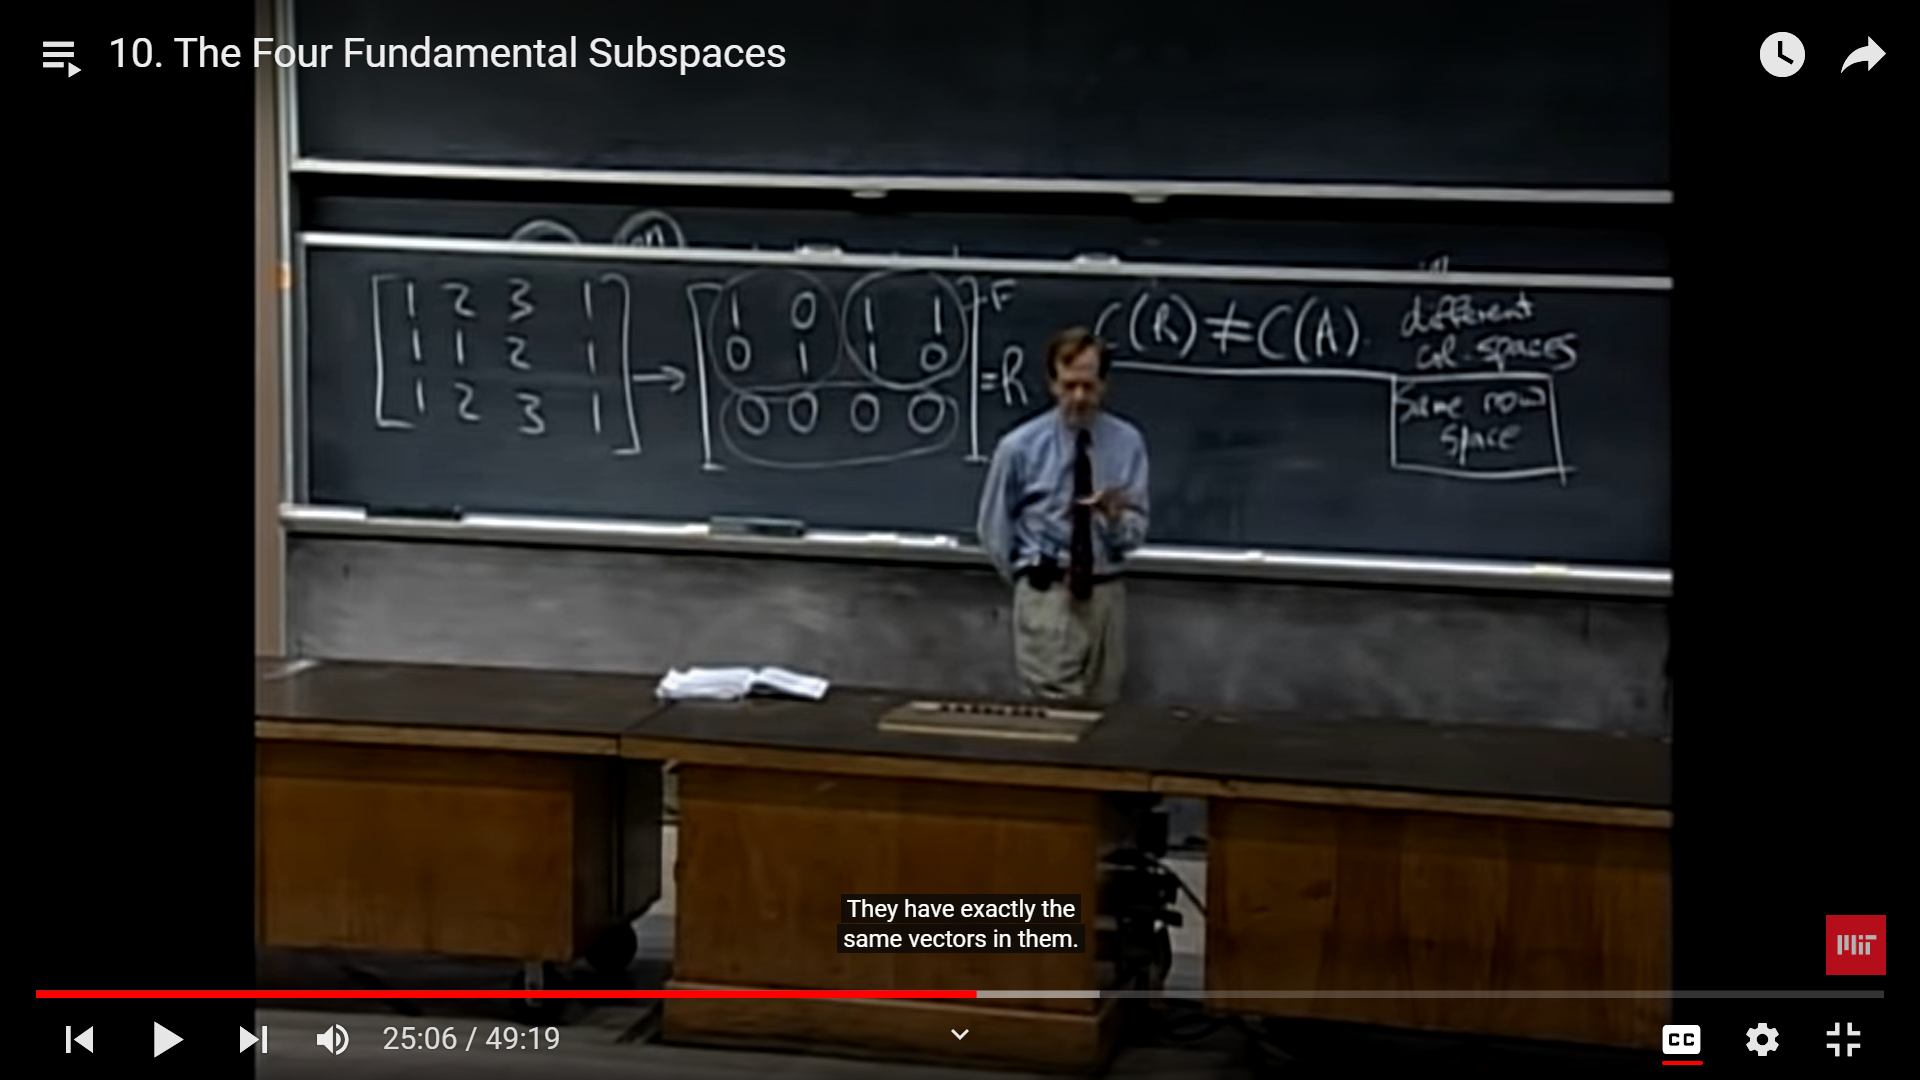 10. The Four Fundamental Subspaces
m
1 2 3 1
1 1 2 1
1 2 3 1
→
1 0 1 1
0 1 1 0
0 0 0 0
F
= R
C(R) ≠ C(A).
different
col. spaces
same row
space
They have exactly the
same vectors in them.
MIT
25:06 / 49:19
CC